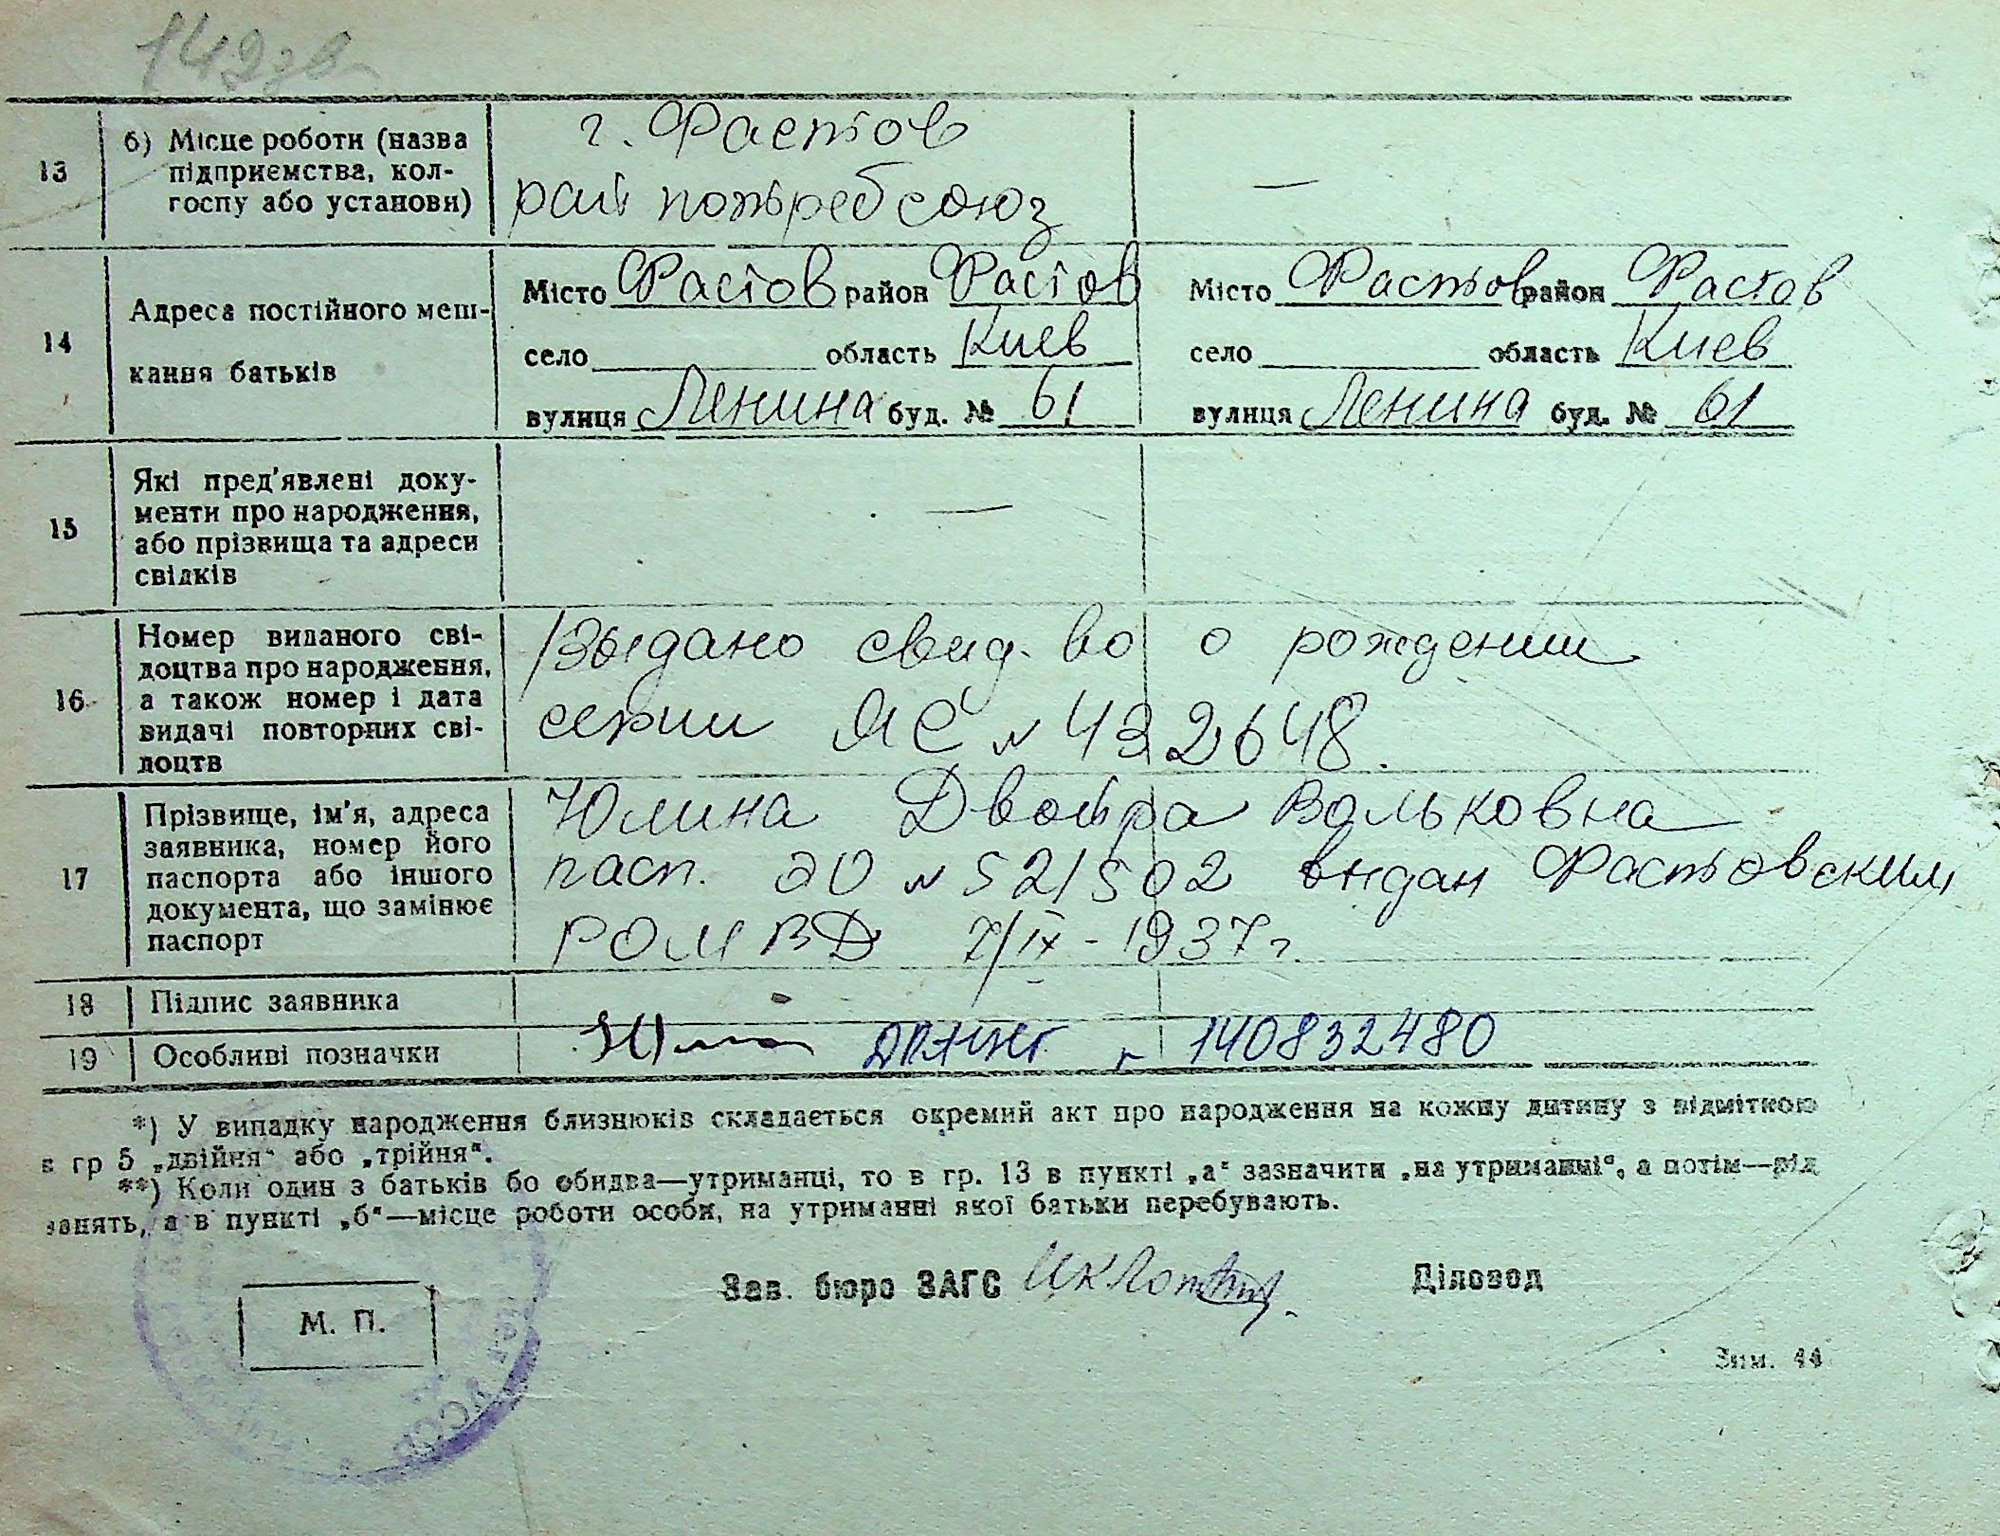 142зв
13 б) Місце роботи (назва підприємства, колгоспу або установи)
г. Фастов
рай потребсоюз
—
14 Адреса постійного мешкання батьків
Місто Фастов район Фастов
село область Киев
вулиця Ленина буд. № 61
Місто Фастов район Фастов
село область Киев
вулиця Ленина буд. № 61
15 Які пред'явлені документи про народження, або прізвища та адреси свідків
—
16 Номер виданого свідоцтва про народження, а також номер і дата видачі повторних свідоцтв
Выдано свид-во о рождении
серии ЯС № 432648.
17 Прізвище, ім'я, адреса заявника, номер його паспорта або іншого документа, що замінює паспорт
Юлина Двойра Вольковна
пасп. ЭО № 521502 выдан Фастовским
РОМВД 7/IX - 1937 г.
18 Підпис заявника
19 Особливі позначки
г 140832480
*) У випадку народження близнюків складається окремий акт про народження на кожну дитину з відміткою
в гр 5 „двійня" або „трійня".
**) Коли один з батьків бо обидва—утриманці, то в гр. 13 в пункті „а" зазначити „на утриманні", а потім—рід
занять, а в пункті „б"—місце роботи особи, на утриманні якої батьки перебувають.
Зав. бюро ЗАГС
Діловод
М. П.
УССР
Зам. 44